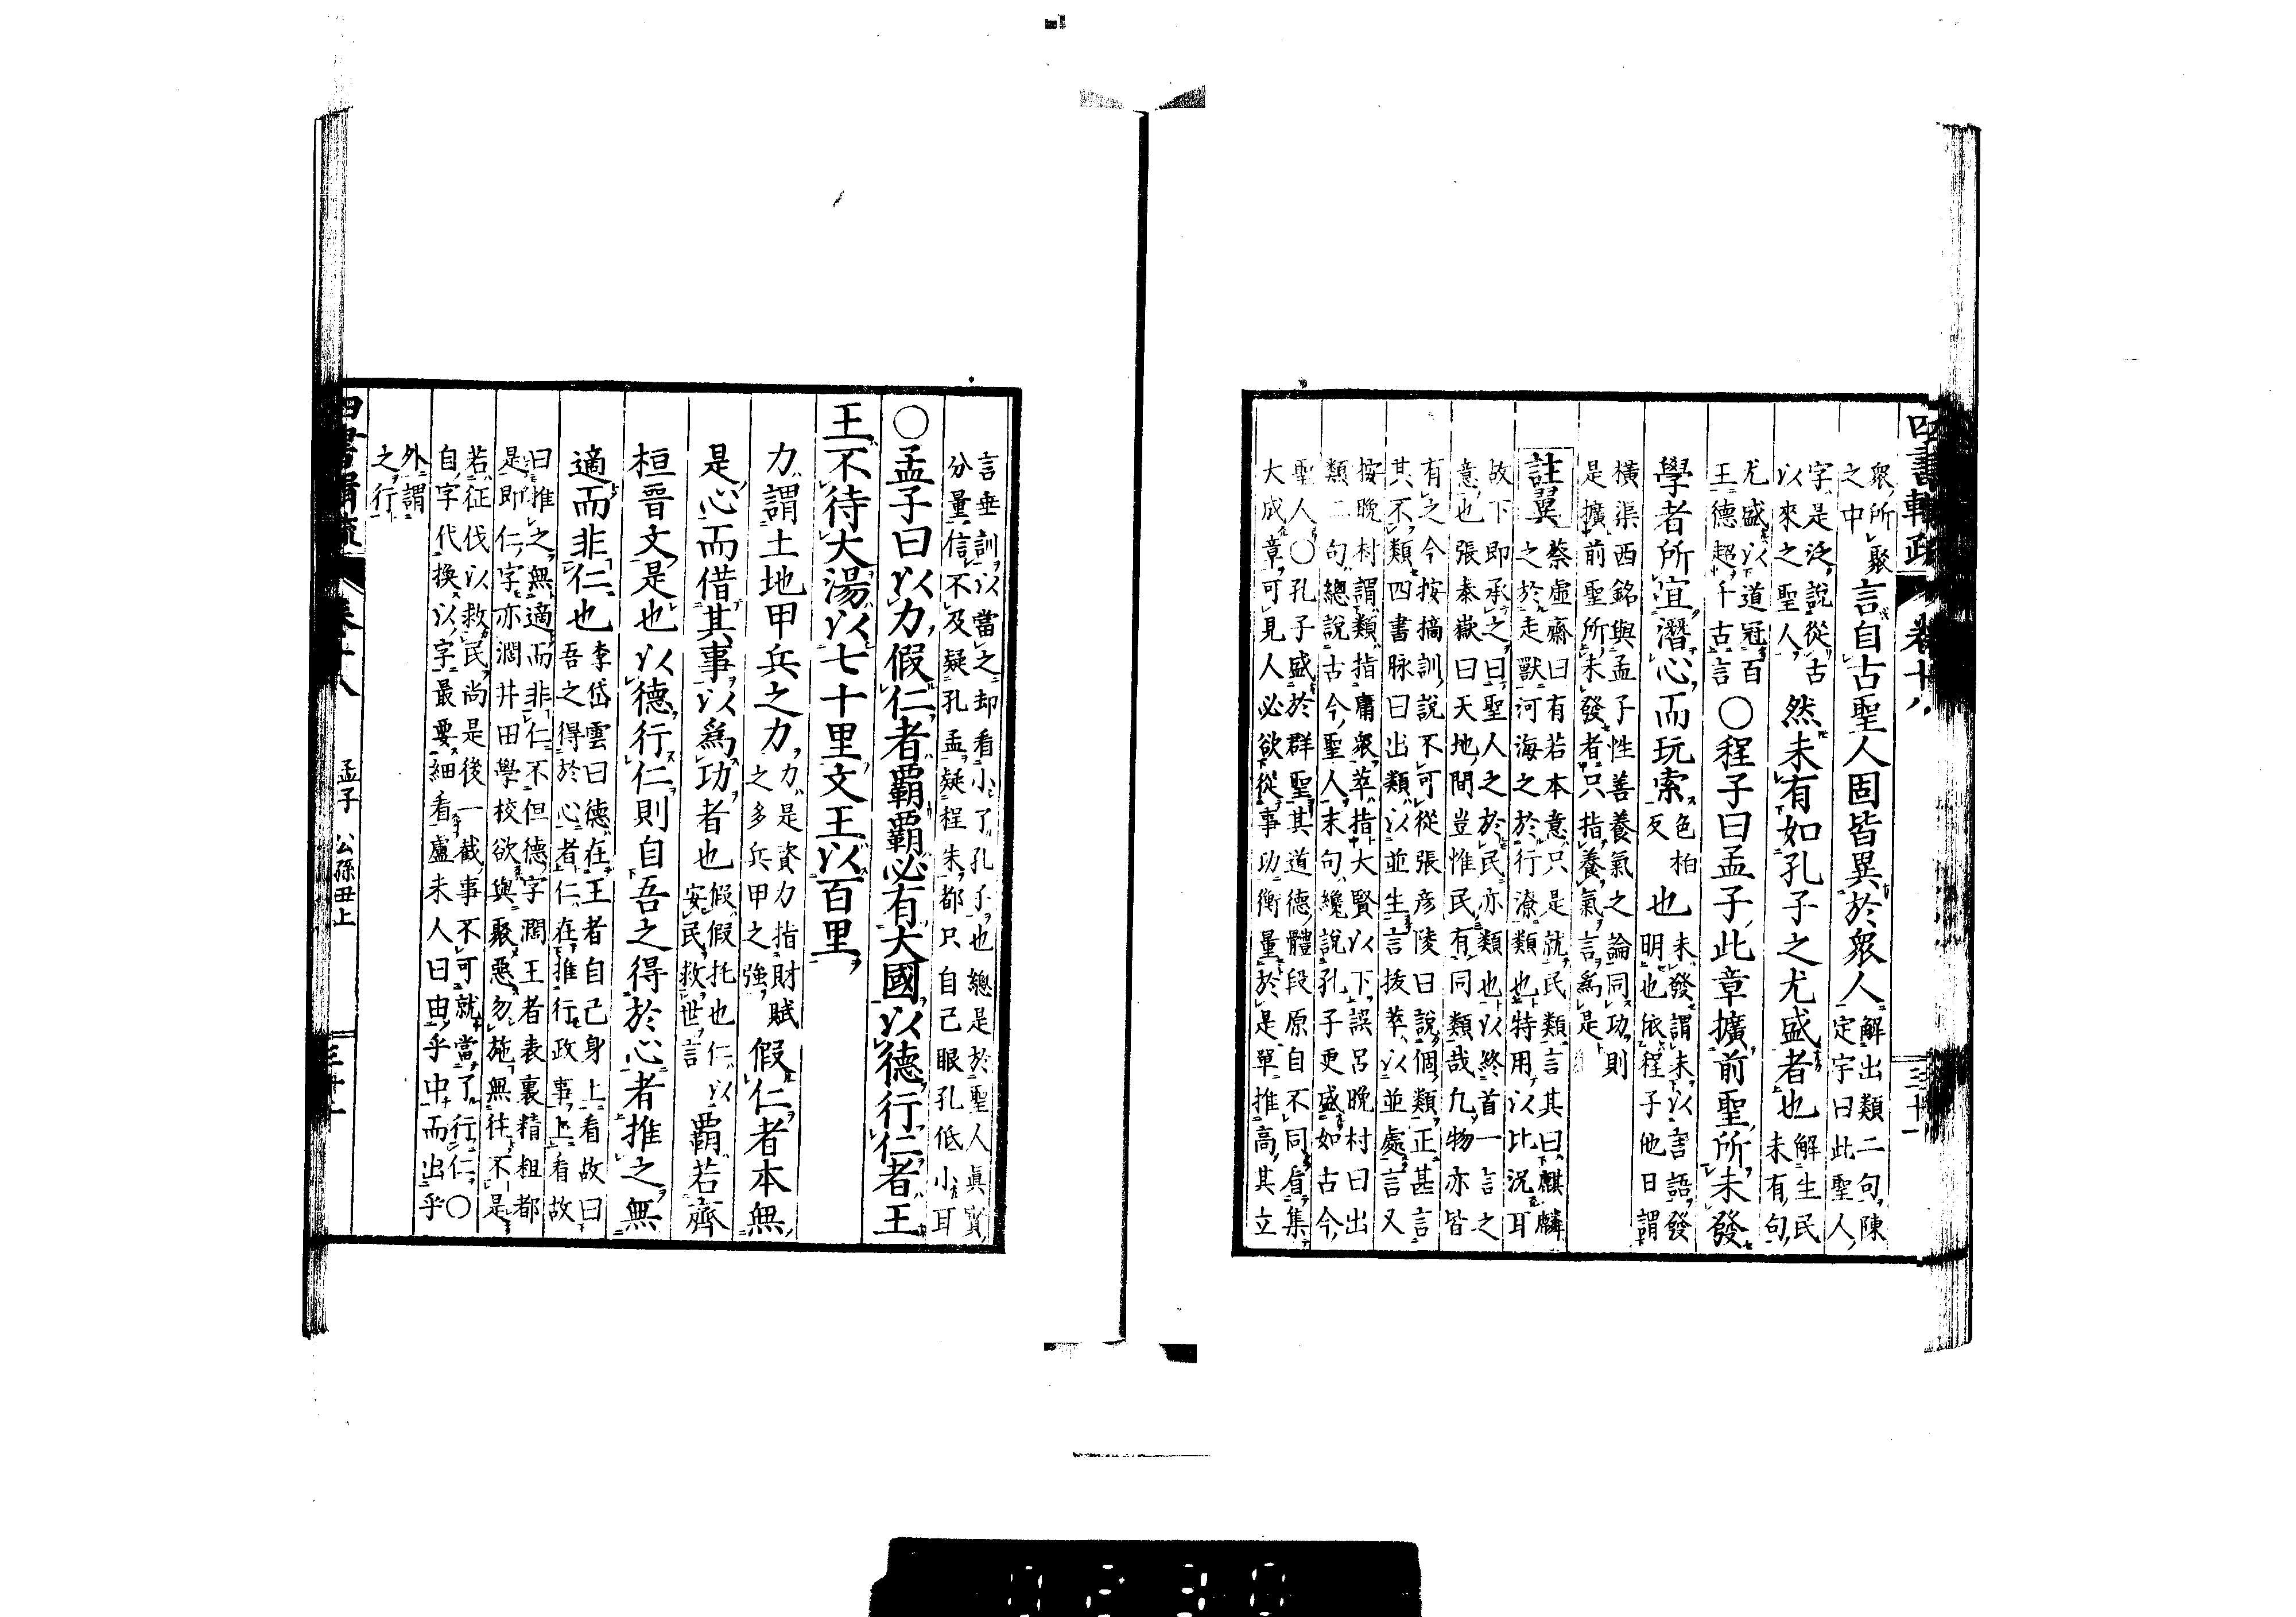 四書輯疏 卷十八 三十一
衆所聚
之中
言自古聖人固皆異於衆人
解出類二句陳
定宇曰此聖人
字是泛說從古
以來之聖人
然未有如孔子之尤盛者也
解生民
未有句
尤盛以道冠百
王德超千古言
○程子曰孟子此章擴前聖所未發
學者所宜潛心而玩索
色柏
反
也
未發謂未以言語發
明也依程子他日謂
橫渠西銘與孟子性善養氣之論同功則
是擴前聖所未發者只指養氣言爲是
註翼
蔡虛齋曰有若本意只是就民類言其曰麒麟
之於走獸河海之於行潦類也特用以比況耳
故下即承之曰聖人之於民亦類也以終首一言之
意也張秦嶽曰天地間豈惟民有同類哉凡物亦皆
有之今按搞訓說不可從張彥陵曰說個類正甚言
其不類四書脉曰出類以並生言拔萃以並處言又
按晚村謂類指庸衆萃指大賢以下誤呂晚村曰出
類二句總說古今聖人末句纔說孔子更盛如古今
聖人○孔子盛於群聖其道德體段原自不同看集
大成章可見人必欲從事功衡量於是單推高其立
言垂訓以當之却看小了孔子也總是於聖人眞實
分量信不及疑孔孟疑程朱都只自己眼孔低小耳
○孟子曰以力假仁者霸霸必有大國以德行仁者王
王不待大湯以七十里文王以百里
力謂土地甲兵之力
力是資力指財賦
之多兵甲之強
假仁者本無
是心而借其事以爲功者也
假假托也仁以
安民救世言
霸若齊
桓晉文是也以德行仁則自吾之得於心者推之無
適而非仁也
李岱雲曰德在王者自己身上看故曰
吾之得於心者仁在推行政事上看故
曰推之無適而非仁不但德字濶王者表裏精粗都
是即仁字亦濶井田學校欲與聚惡勿施無往不是
若征伐以救民尚是後一截事不可就當了行仁○
自字代換以字最要細看盧未人曰由乎中而出乎
外謂
之行
四書輯疏 卷十八 孟子 公孫丑上